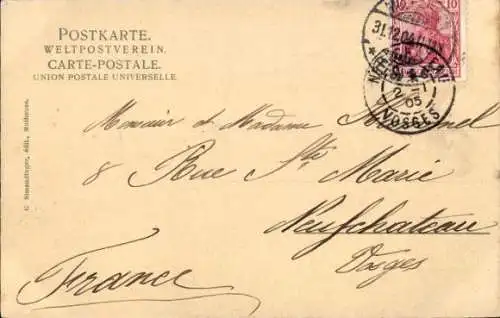 POSTKARTE.
WELTPOSTVEREIN.
CARTE-POSTALE.
UNION POSTALE UNIVERSELLE.
10
31.12.04
2 - 1
05
VOSGES
Monsieur et Madame
8 Rue Ste Marie
Neufchateau
Vosges
France